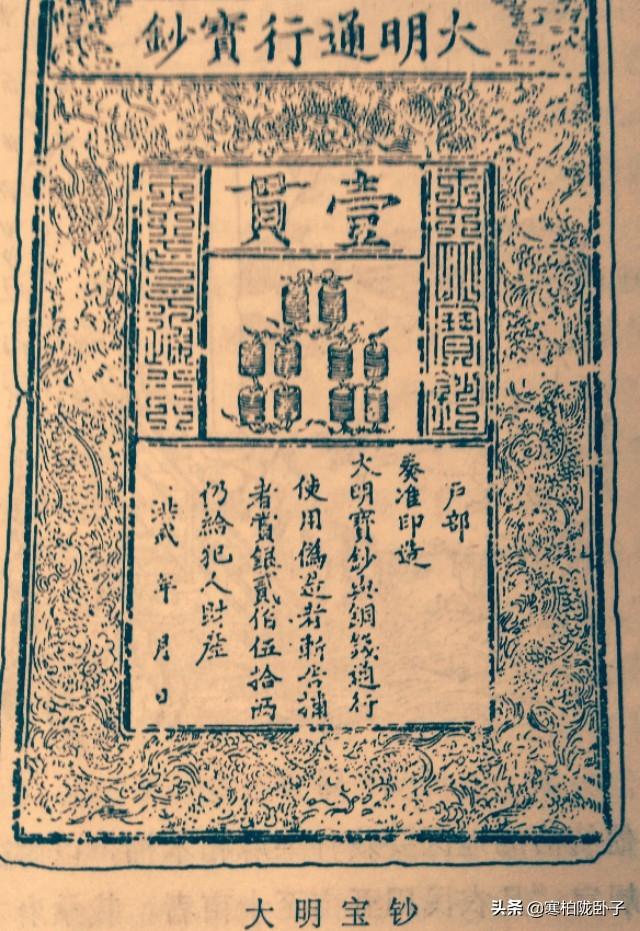 大明通行寶鈔
壹貫
戶部
奏准印造
大明寶鈔與銅錢通行
使用僞造者斬告捕
者賞銀貳佰伍拾兩
仍給犯人財產
洪武 年 月 日
大明宝钞
头条 @寒柏陇卧子